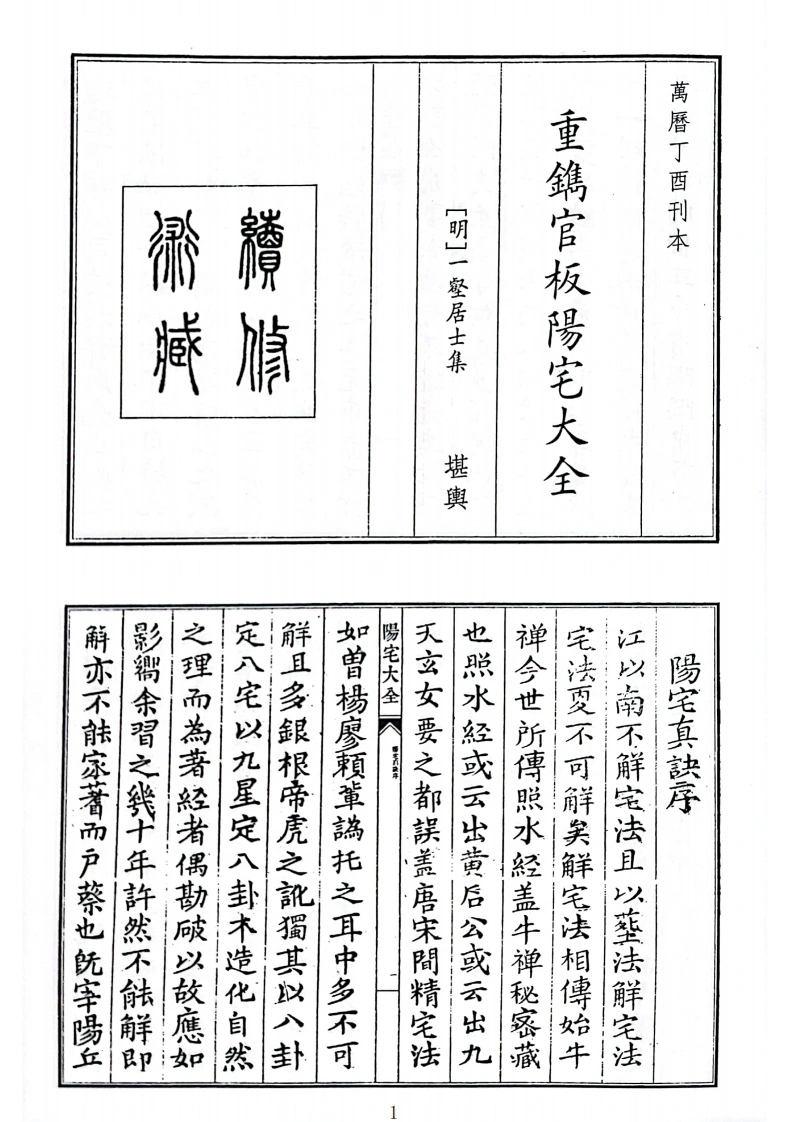 萬曆丁酉刊本
重鐫官板陽宅大全
[明]一壑居士集 堪輿
續修
術藏
陽宅真訣序
江以南不解宅法且以塟法解宅法
宅法更不可解矣解宅法相傳始牛
禅今世所傳照水經蓋牛禅秘密藏
也照水经或云出黄石公或云出九
天玄女要之都誤盖唐宋間精宅法
陽宅大全
一
如曾楊廖賴軰譌托之耳中多不可
解且多銀根帝虎之訛獨其以八卦
定八宅以九星定八卦本造化自然
之理而為著經者偶勘破以故應如
影嚮余習之幾十年許然不能解即
解亦不能家蓍而户蔡也既宰陽丘
1